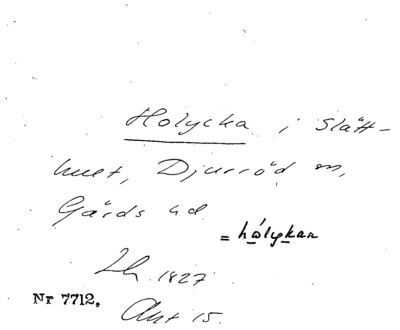 Holycka i Slätt-
huet, Djurröd sn,
Gärds hd
= hólykan
Lh. 1827
Nr 7712.
Akt 15.